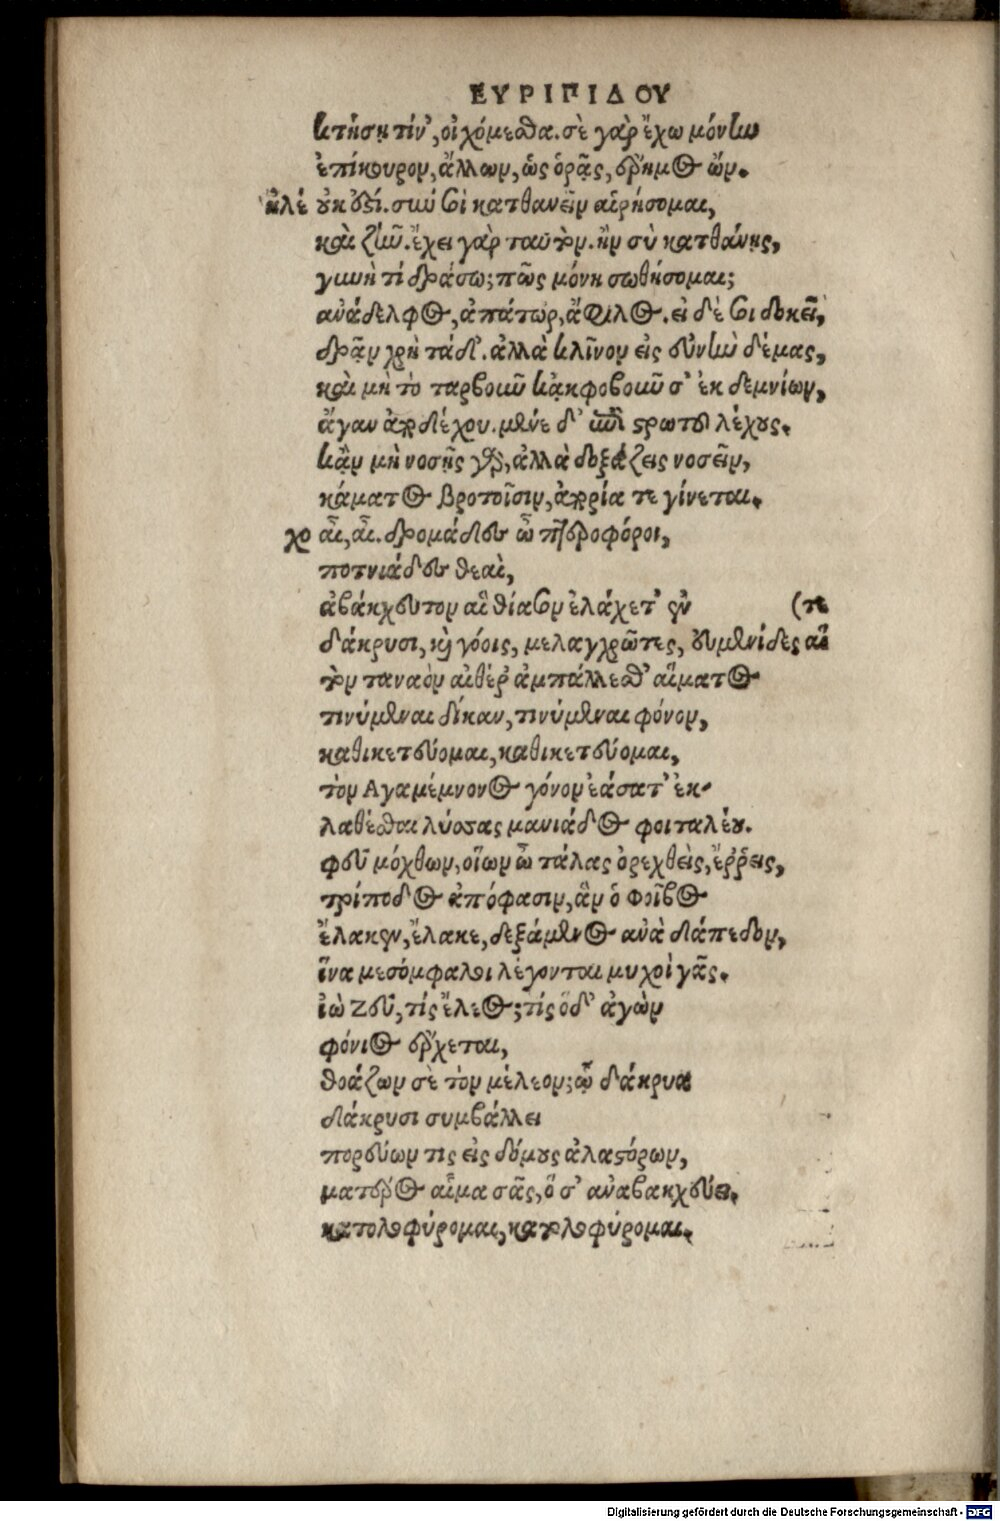 ΕΥΡΙΠΙΔΟΥ
κτήσῃ τίν', οἰχόμεσθα. σὲ γὰρ ἔχω μόνην
ἐπίκουρον, ἄλλων, ὡς ὁρᾷς, ἔρημος ὤν.
ἠλέ οὐκ ἔστι. σὺν σοὶ κατθανεῖν αἱρήσομαι,
καὶ ζῆν. ἔχει γὰρ ταὐτὸν. ἢν σὺ κατθάνῃς,
γυνὴ τί δράσω; πῶς μόνη σωθήσομαι;
ἀνάδελφος, ἀπάτωρ, ἄφιλος. εἰ δὲ σοι δοκεῖ,
δρᾷν χρὴ τάδ'. ἀλλὰ κλῖνον εἰς εὐνὴν δέμας,
καὶ μὴ τὸ ταρβοιοῦν κἀκφοβοιοῦν σ' ἐκ δεμνίων,
ἄγαν ἀποδέχου. μένε δ' ἐπὶ στρωτοῦ λέχους.
κἂν μὴ νοσῇς γὰρ, ἀλλὰ δοξάζεις νοσεῖν,
κάματος βροτοῖσιν, ἀπορία τε γίνεται.
χο αἶ, αἶ. δρομάδες ὦ πτεροφόροι,
ποτνιάδες θεαὶ,
ἀβάκχευτον αἳ θίασον ἐλάχετ' ἐν (τε
δάκρυσι, καὶ γόοις, μελαγχρῶτες, εὐμενίδες αἵ
τὸν ταναὸν αἰθέρ' ἀμπάλλεσθ' αἵματος
τινύμεναι δίκαν, τινύμεναι φόνον,
καθικετεύομαι, καθικετεύομαι,
τὸν Ἀγαμέμνονος γόνον ἐάσατ' ἐκ-
λαθέσθαι λύσσας μανιάδος φοιταλέου.
φεῦ μόχθων, οἵων ὦ τάλας ὀρεχθεὶς, ἔῤῥεις,
τρίποδος ἀπόφασιν, ἂν ὁ Φοῖβος
ἔλακεν, ἔλακε, δεξάμενος ἀνὰ δάπεδον,
ἵνα μεσόμφαλοι λέγονται μυχοὶ γᾶς.
ἰὼ Ζεῦ, τίς ἔλεος; τίς ὅδ' ἀγὼν
φόνιος ἔρχεται,
θοάζων σὲ τὸν μέλεον; ᾧ δάκρυα
δάκρυσι συμβάλλει
πορεύων τις εἰς δόμους ἀλαστόρων,
ματέρος αἷμα σᾶς, ὅ σ' ἀναβακχεύει,
κατολοφύρομαι, κατολοφύρομαι.
Digitalisierung gefördert durch die Deutsche Forschungsgemeinschaft - DFG